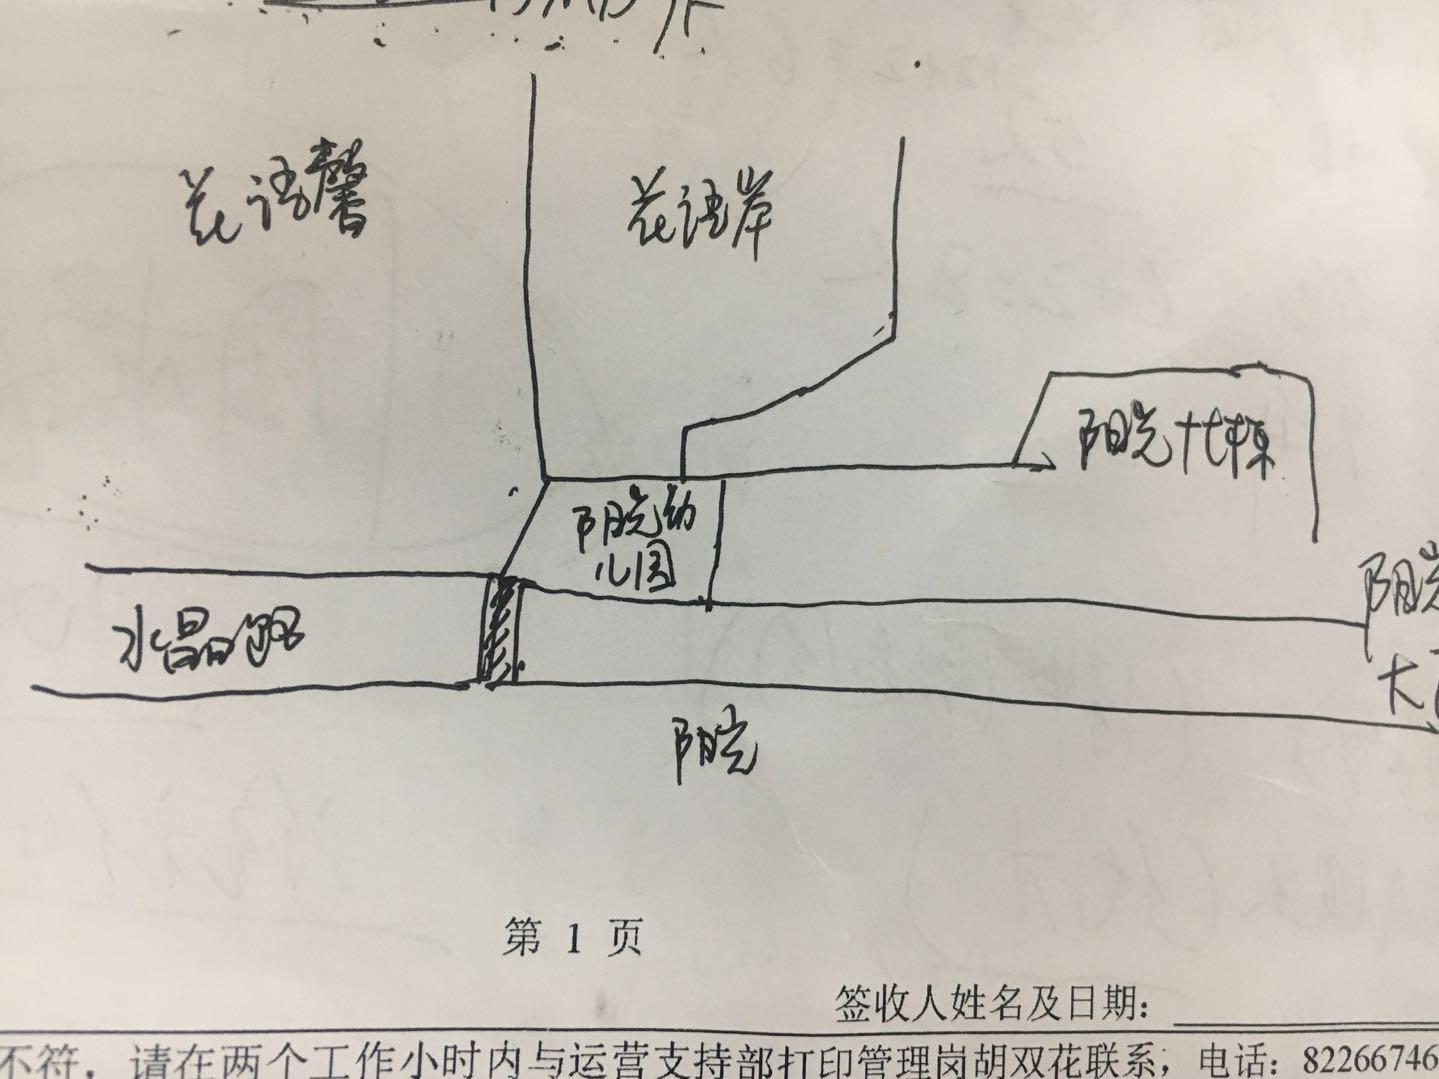 花语馨
花语岸
阳光十七栋
阳光幼
儿园
水晶路
阳光
大
阳光
第 1 页
签收人姓名及日期:
不符，请在两个工作小时内与运营支持部打印管理岗胡双花联系，电话：82266746